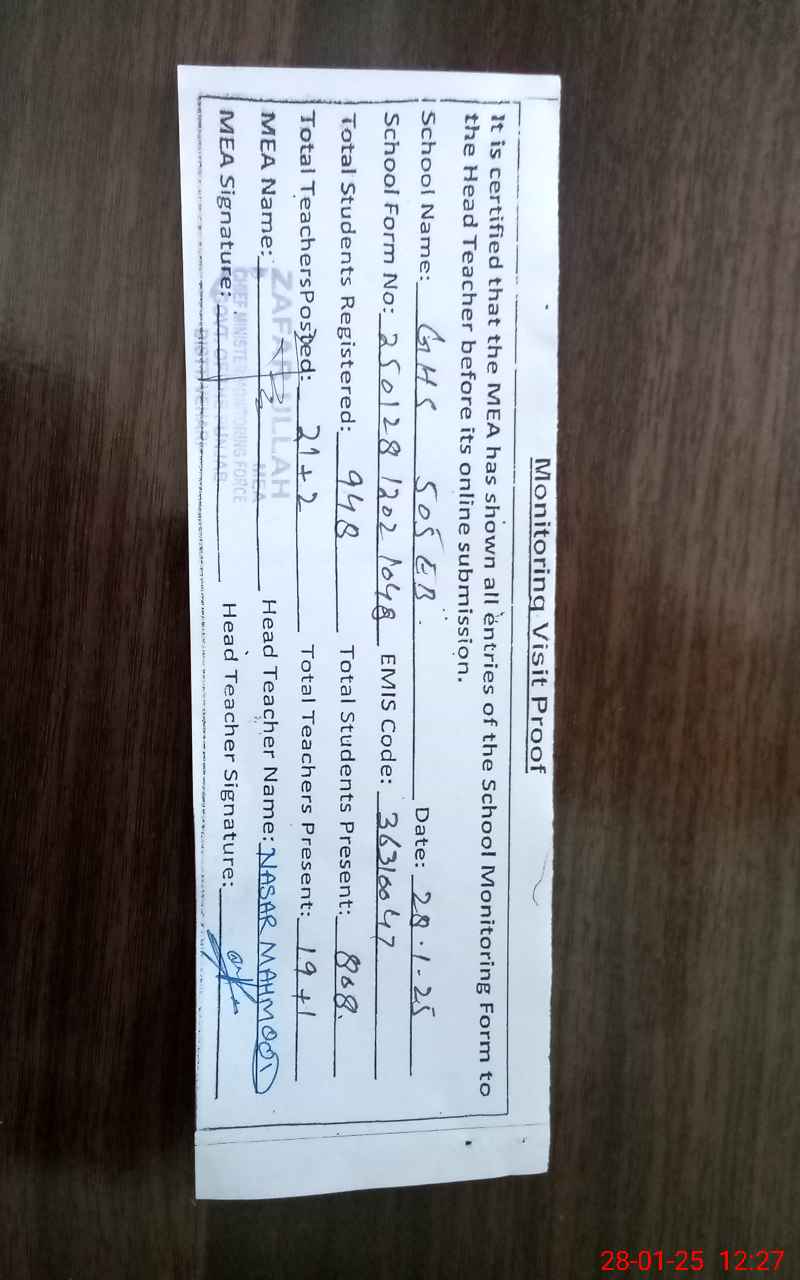 Monitoring Visit Proof
It is certified that the MEA has shown all entries of the School Monitoring Form to
the Head Teacher before its online submission.
School Name: GHS 505 EB. Date: 28.1.25
School Form No: 250128 1202 1048 EMIS Code: 36310047
Total Students Registered: 948 Total Students Present: 808.
Total TeachersPosted: 21+2 Total Teachers Present: 19+1
MEA Name: Head Teacher Name: NASAR MAHMOOD
MEA Signature: Head Teacher Signature:
ZAFAR ULLAH
MEA
CHIEF MINISTER MONITORING FORCE
GOVT. OF THE PUNJAB
28-01-25 12:27